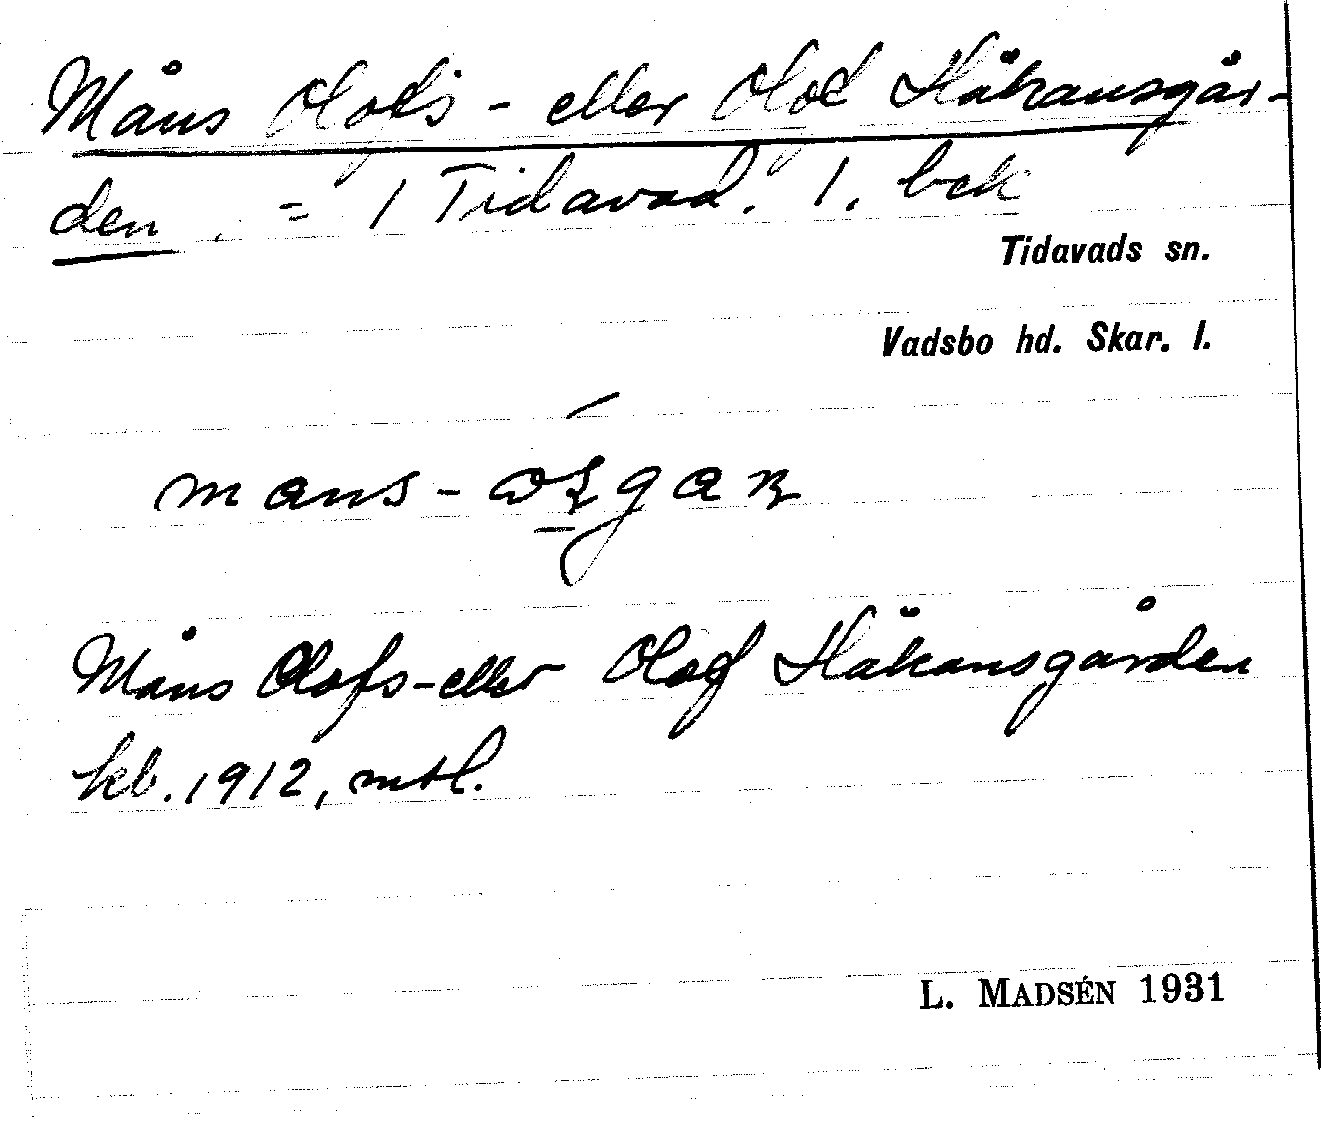 Måns Olofs- eller Olof Håkansgår-
den. = 1 Tidavad. 1. bck
Tidavads sn.
Vadsbo hd. Skar. l.
Måns Olofs-eller Olof Håkansgården
kb. 1912, mtl.
L. MADSÉN 1931